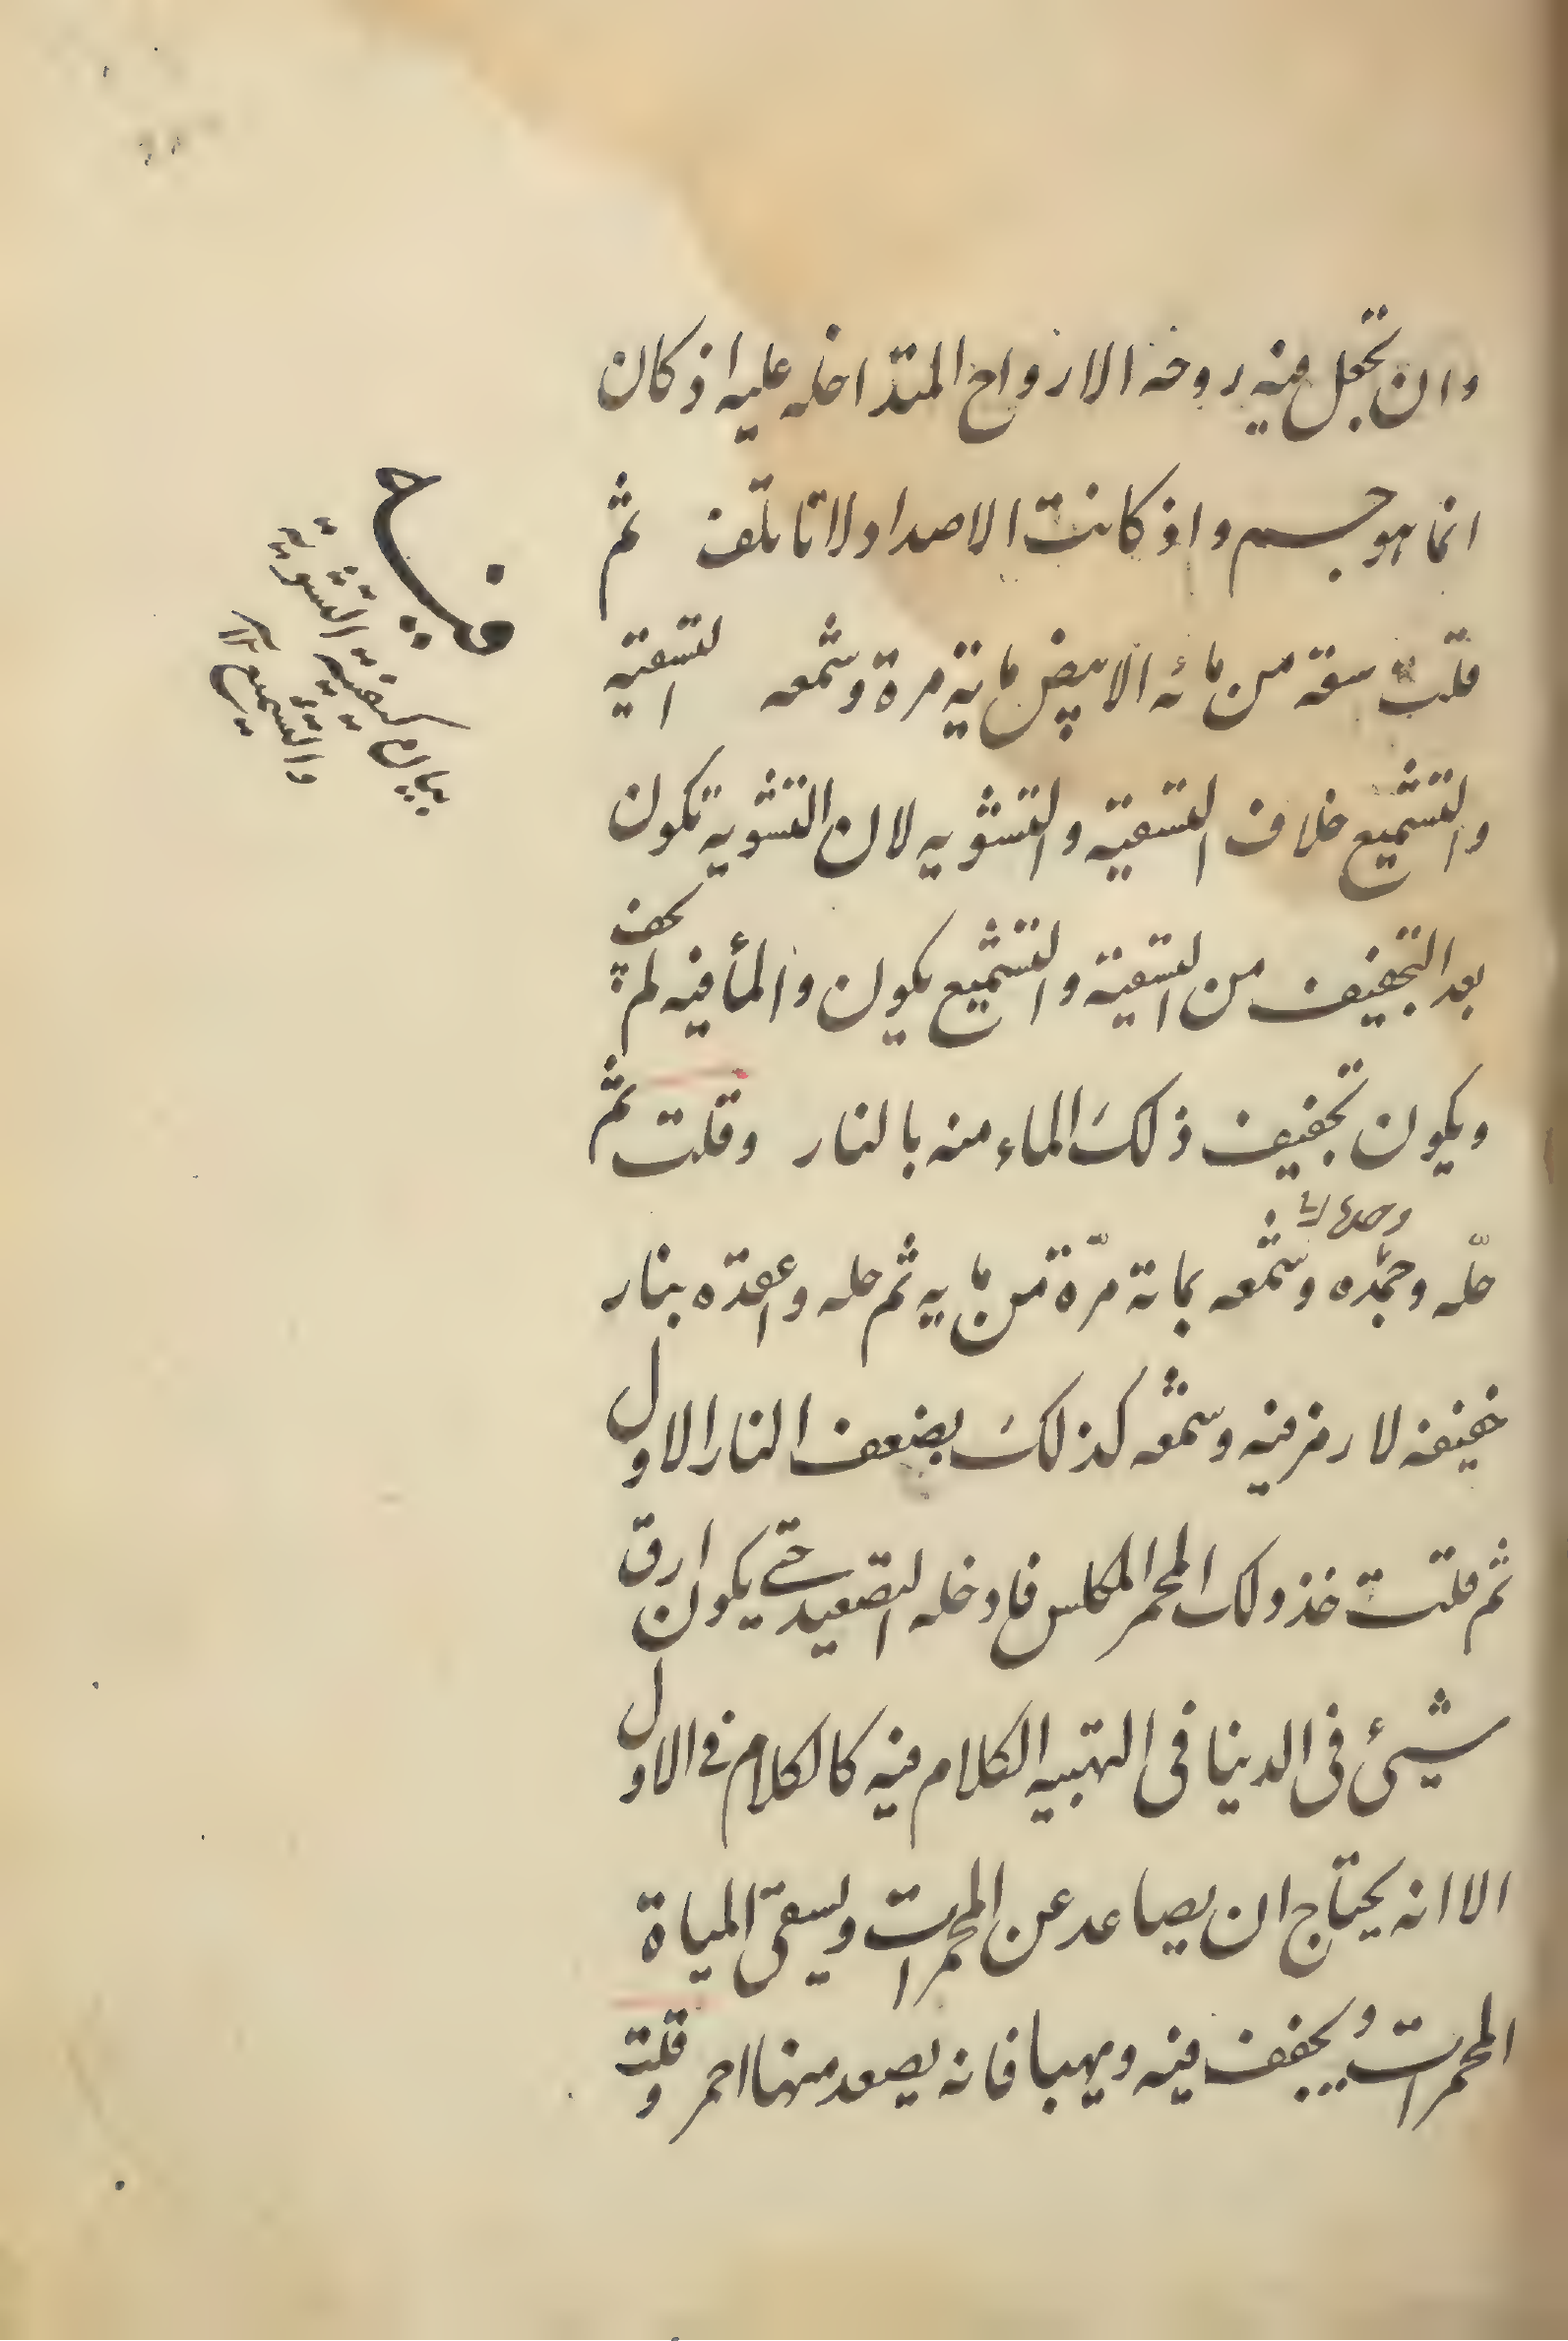 وان تجعل فيه روحه الارواح المتداخله عليه اذ كان
انما هو جسم واذ كانت الاضداد لا تاتلف ثم
قلت سقه من مائه الابيض ماية مرة وشمعه التسقيه
والتشميع خلاف التسقية والتشويه لان التشوية تكون
بعد التجفيف من التسقية والتشميع يكون والمأ فيه لم يجف
ويكون تجفيف ذلك الماء منه بالنار وقلت ثم
حلّه وجمّده وشمّعه بماية مرّة من مايه ثم حله واعقده بنار
خفيفه لا رمز فيه وشمّعه كذلك بضعف النار الاول
ثم قلت خذ ذلك المحمر المكلس فادخله التصعيد حتى يكون ارق
شيئ في الدنيا في التهبيه الكلام فيه كالكلام في الاول
الا انه يحتاج ان يصاعد عن المحمرات ويسقى المياة
المحمرات ويجفف فيه ويهبا فانه يصعد منها احمر وقلت
بيان كيفية التشوية
والتشميع